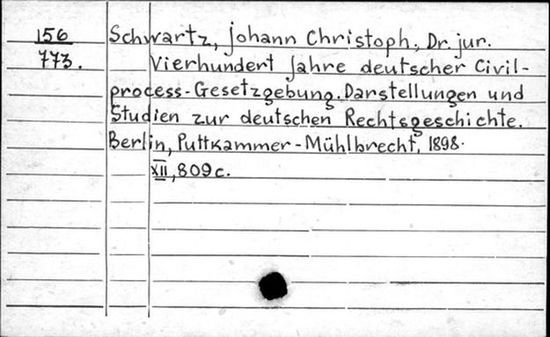 156
773.
Schwartz, Johann Christoph, Dr. jur.
Vierhundert Jahre deutscher Civil-
process-Gesetzgebung. Darstellungen und
Studien zur deutschen Rechtsgeschichte.
Berlin, Puttkammer-Mühlbrecht, 1898.
XII, 809 c.